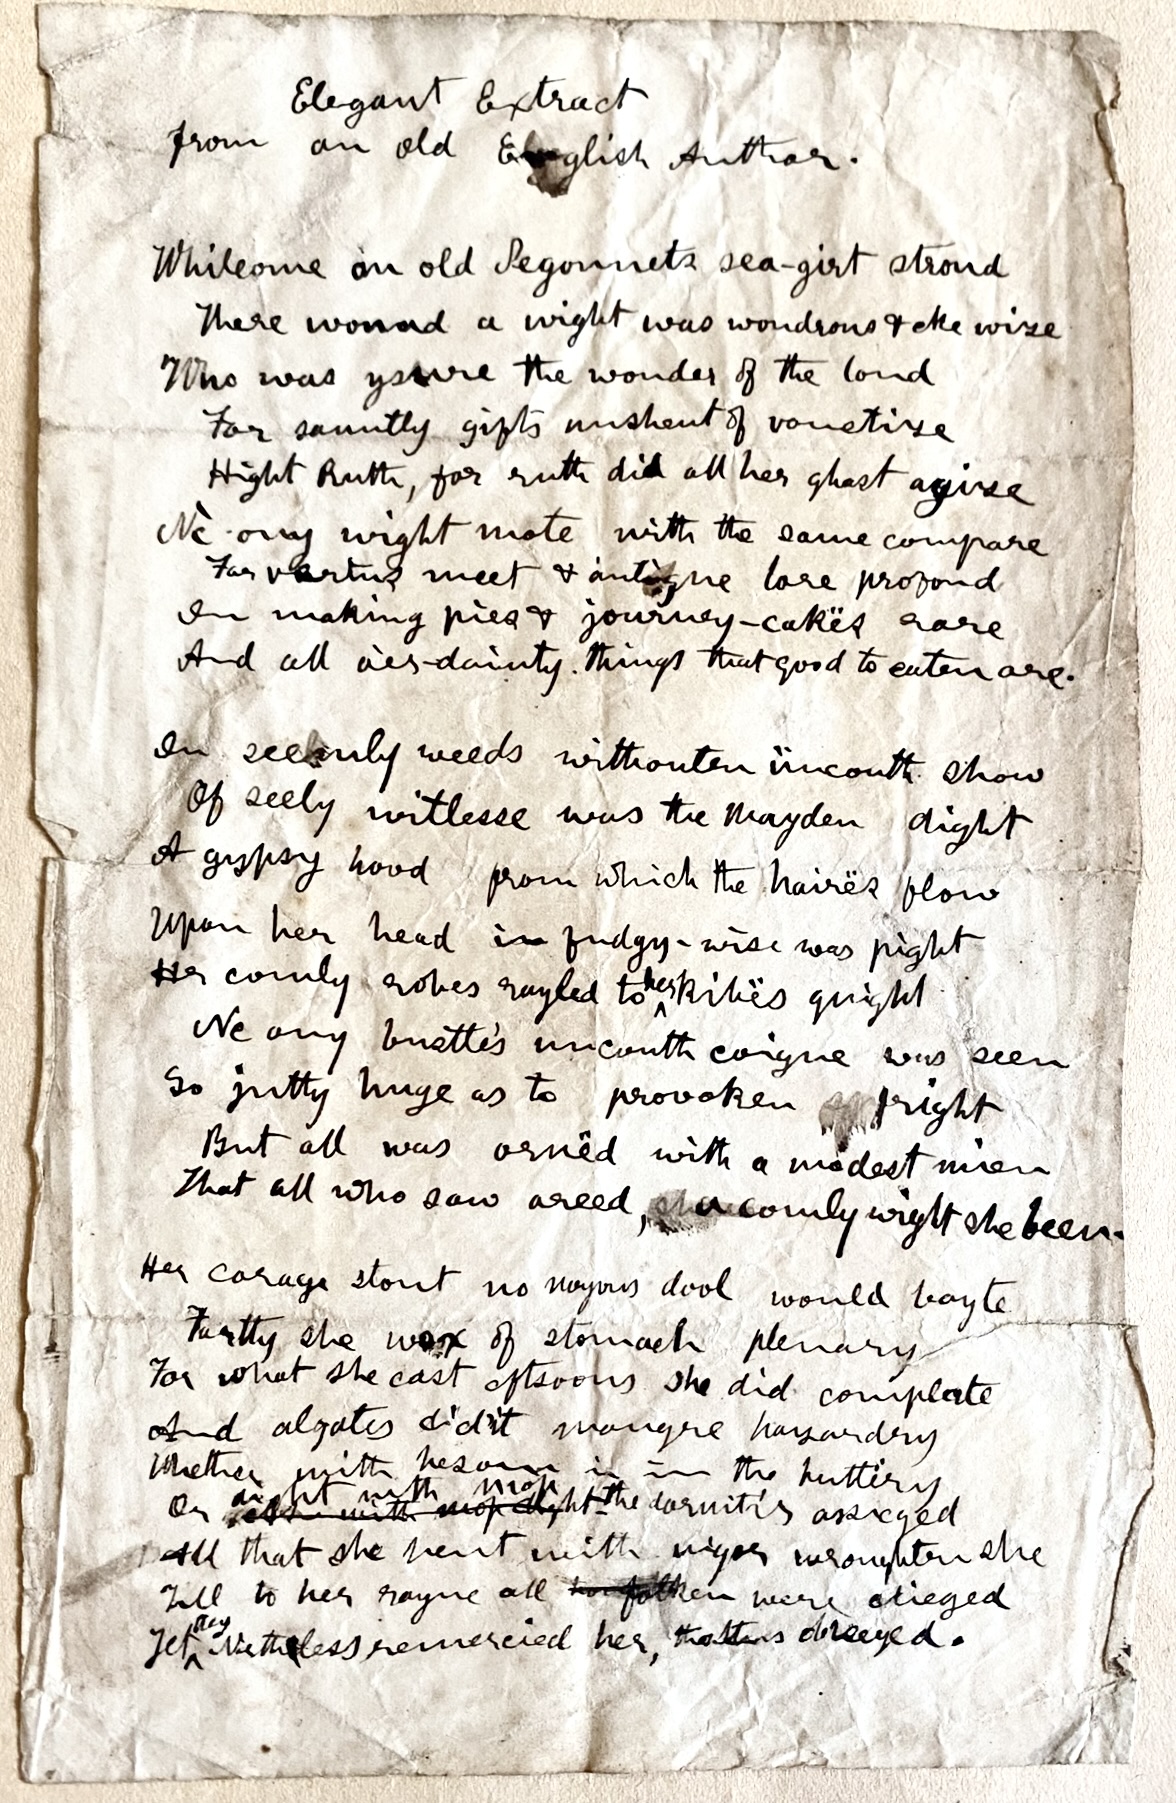 Elegant Extract
from an old English Author.
Whilcome on old Segonnets sea-girt strond
There wonnd a wight was wondrous & eke wise
Who was yswire the wonder of the lond
For saintly gifts unshent of vanetise
Hight Ruth, for ruth did all her ghost aguise
Ne any wight mote with the same compare
For vertus meet & antique lore profond
In making pies & journey-cakës rare
And all oer-dainty things that good to eaten are.
In seemly weeds withouten üncouth show
Of seely witlesse was the Mayden dight
A gypsy hood from which the hairës flow
Upon her head in fudgy-wise was pight
Her comly robes rayled to her kibës quight
Ne any bustle's uncouth coigne was seen
So jutty huge as to provoken fright
But all was ornëd with a modest mien
That all who saw areed, a comly wight she been.
Her corage stout no noyous dool would bayte
Furtly she wox of stomach plenary
For what she cast eftsoons she did compleate
And algates did it maugre hazardry
Whether with besom in the buttery
Or dight with mop the dornit's assieged
All that she hent with vigor wroughten she
Till to her rayne all folken were obeged
Yet they Nethless remercied her, obeeyed.